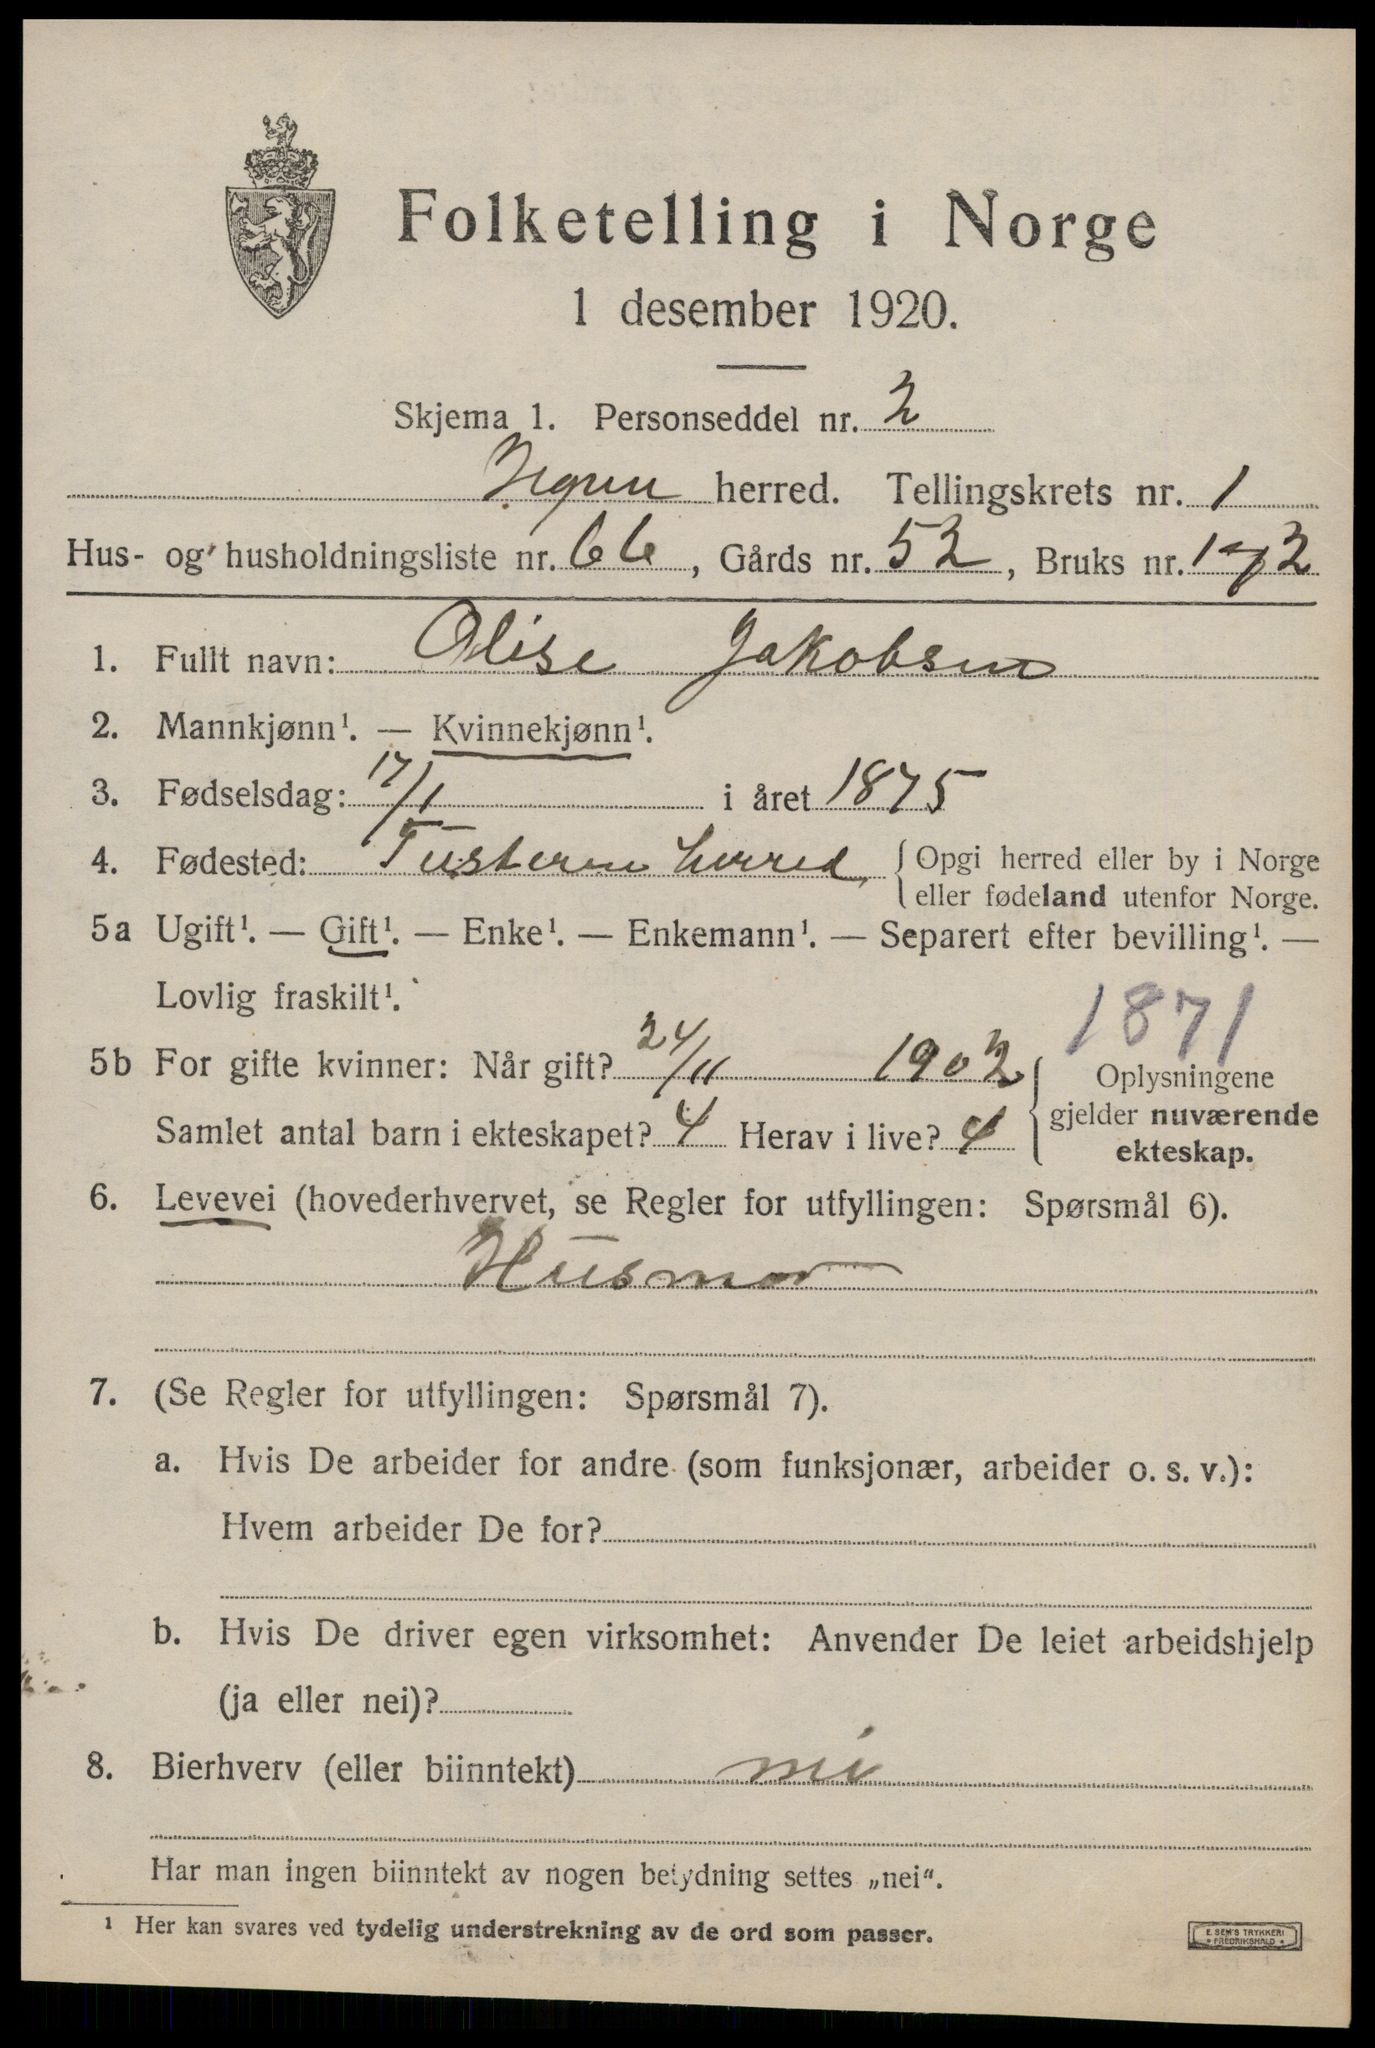 Folketelling i Norge
1 desember 1920.
Skjema 1. Personseddel nr. 2
herred. Tellingskrets nr. 1
Hus- og husholdningsliste nr. 66, Gårds nr. 52, Bruks nr. 1-2
1. Fullt navn: Olise Jakobsen
2. Mannkjønn¹. — Kvinnekjønn¹.
3. Fødselsdag: 17/1 i året 1875
4. Fødested: Tusteren herred { Opgi herred eller by i Norge
eller fødeland utenfor Norge.
5a Ugift¹. — Gift¹. — Enke¹. — Enkemann¹. — Separert efter bevilling¹. —
Lovlig fraskilt¹.
1871
5b For gifte kvinner: Når gift? 24/11 1902 { Oplysningene
Samlet antal barn i ekteskapet? 4 Herav i live? 4 gjelder nuværende
ekteskap.
6. Levevei (hovederhvervet, se Regler for utfyllingen: Spørsmål 6).
Husmor
7. (Se Regler for utfyllingen: Spørsmål 7).
a. Hvis De arbeider for andre (som funksjonær, arbeider o. s. v.):
Hvem arbeider De for?
b. Hvis De driver egen virksomhet: Anvender De leiet arbeidshjelp
(ja eller nei)?
8. Bierhverv (eller biinntekt) nei
Har man ingen biinntekt av nogen betydning settes „nei".
¹ Her kan svares ved tydelig understrekning av de ord som passer.
E. SEM'S TRYKKERI
FREDRIKSHALD